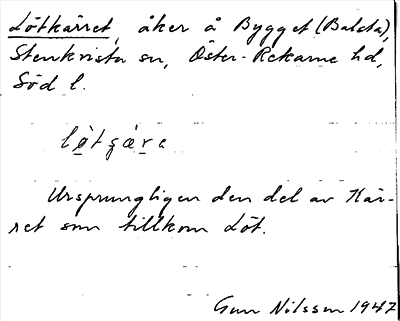 Lötkärret, åker å Bygget (Balsta),
Stenkvista sn, Öster-Rekarne hd,
Söd l.
lø̀tɕæ̀ra
Ursprungligen den del av Kär-
ret som tillkom Löt.
Gun Nilsson 1947